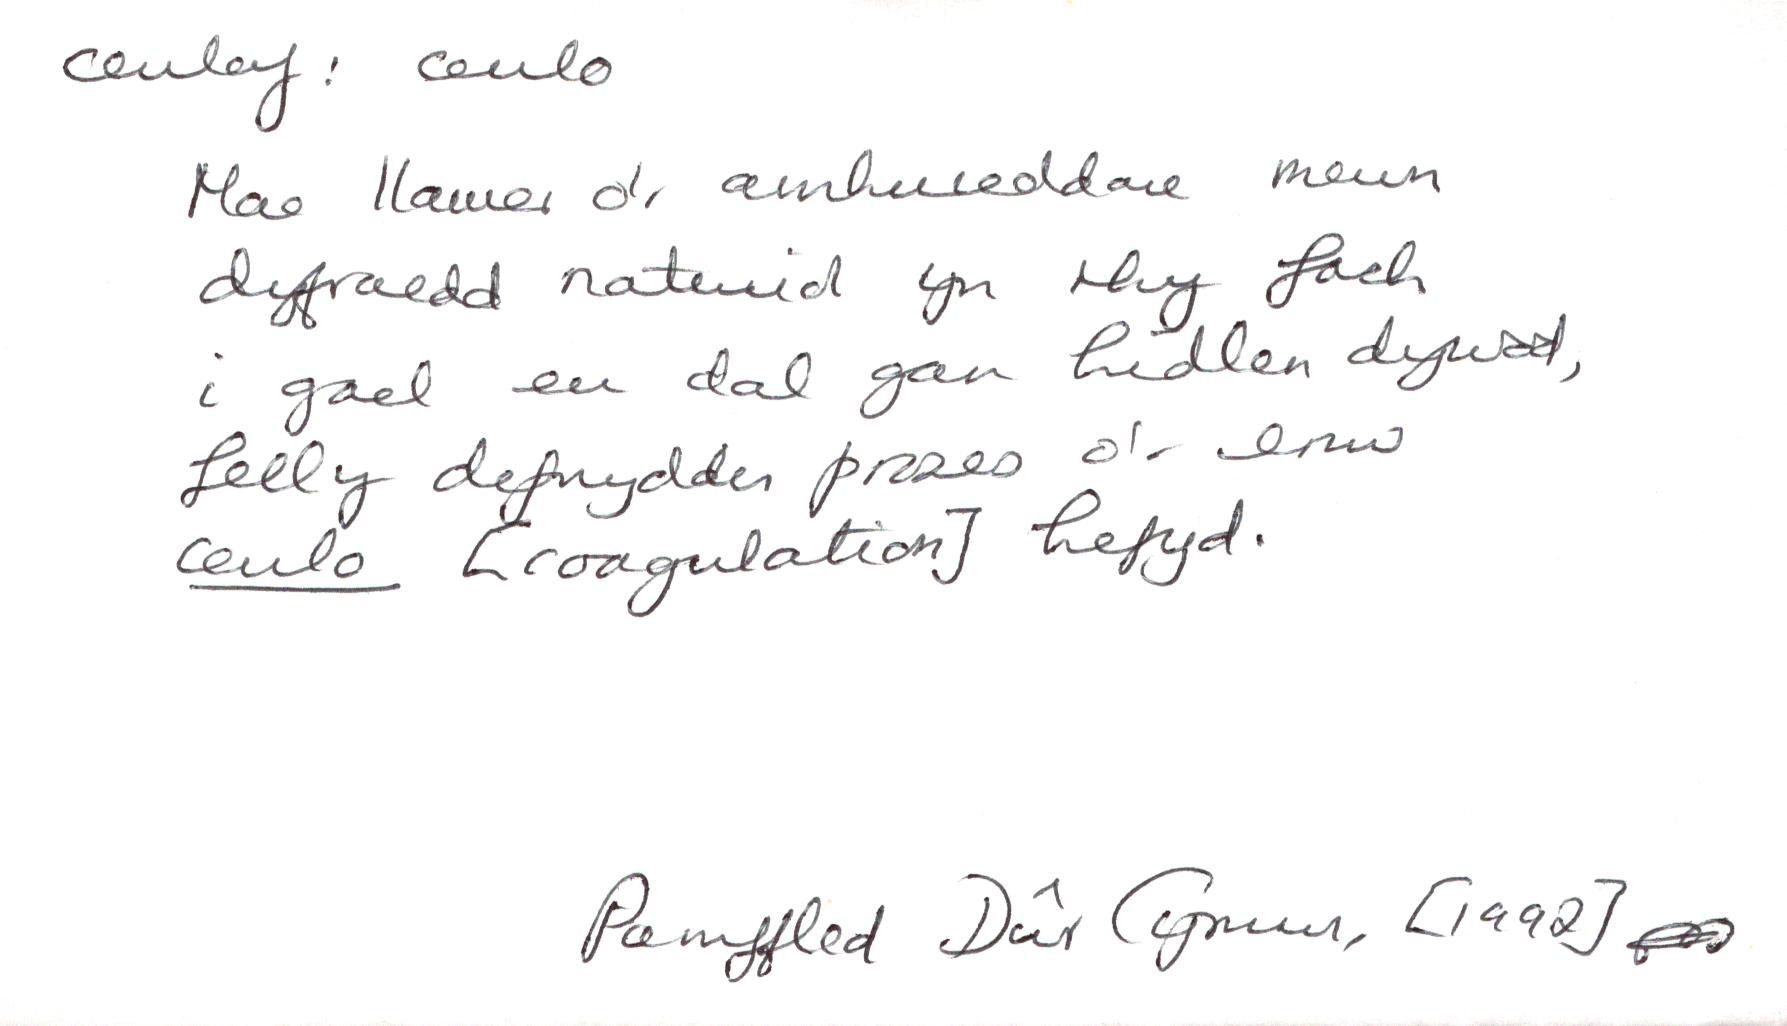 ceulaf: ceulo
Mae llawer o'r amhureddau mewn
dyfraedd naturiol yn rhy fach
i gael eu dal gan hidlen dywod,
felly defnyddir proses o'r enw
ceulo [coagulation] hefyd.
Pamffled Dŵr Cymru, [1992]